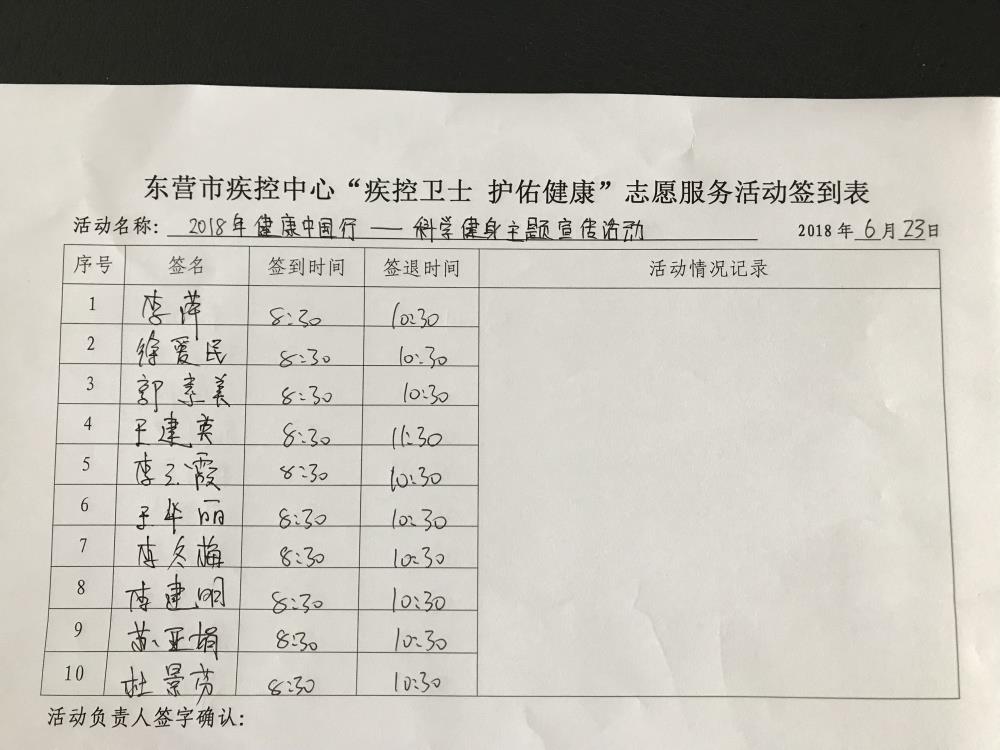 东营市疾控中心“疾控卫士 护佑健康”志愿服务活动签到表
活动名称: 2018年健康中国行——科学健身主题宣传活动 2018年6月23日
序号 签名 签到时间 签退时间 活动情况记录
1 李萍 8:30 10:30
2 徐爱民 8:30 10:30
3 郭素美 8:30 10:30
4 王建英 8:30 11:30
5 李玉霞 8:30 10:30
6 王华丽 8:30 10:30
7 李冬梅 8:30 10:30
8 李建明 8:30 10:30
9 苏亚娟 8:30 10:30
10 杜景芬 8:30 10:30
活动负责人签字确认: